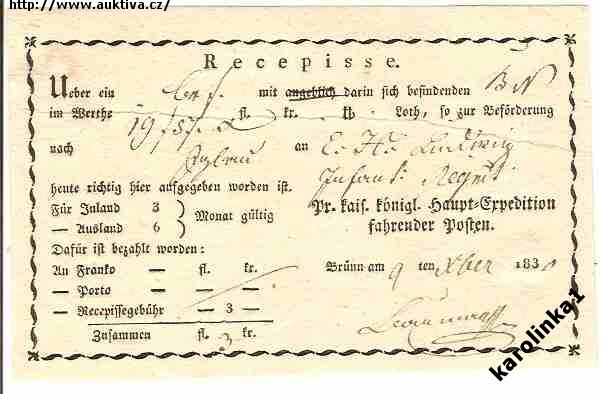 http://www.auktiva.cz/
Recepisse.
Ueber ein mit angeblich darin sich befindenden BN
im Werthe 19 fl. kr. lb. Loth, so zur Beförderung
nach Iglau an E. H. Ludwig
Infant: Regmt
heute richtig hier aufgegeben worden ist.
Für Inland 3
— Ausland 6
Monat gültig
Pr. kais. königl. Haupt-Expedition
fahrender Posten.
Dafür ist bezahlt worden:
An Franko — fl. kr.
— Porto — — —
— Recepissegebühr — 3 —
Zusammen fl. 3 kr.
Brünn am 9 ten Xber 1830
karolinka1